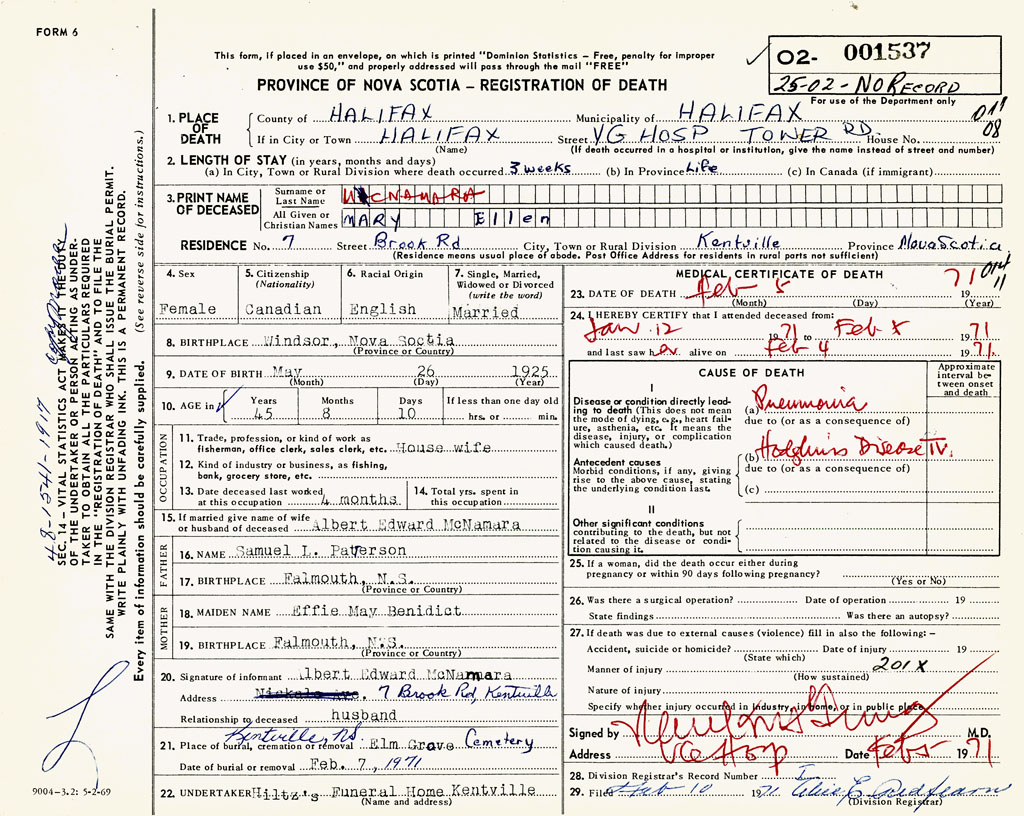 FORM 6
This form, if placed in an envelope, on which is printed "Dominion Statistics – Free, penalty for improper
use $50," and properly addressed will pass through the mail "FREE"
02- 001537
25-02 - NO RECORD
For use of the Department only
PROVINCE OF NOVA SCOTIA – REGISTRATION OF DEATH
011
08
1. PLACE OF DEATH
County of HALIFAX Municipality of HALIFAX
If in City or Town HALIFAX Street VG HOSP TOWER RD. House No.
(Name) (If death occurred in a hospital or institution, give the name instead of street and number)
2. LENGTH OF STAY (in years, months and days)
(a) In City, Town or Rural Division where death occurred 3 weeks (b) In Province Life (c) In Canada (if immigrant)
3. PRINT NAME OF DECEASED
Surname or Last Name McNAMARA
All Given or Christian Names MARY Ellen
RESIDENCE No. 7 Street Brook Rd City, Town or Rural Division Kentville Province Nova Scotia
(Residence means usual place of abode. Post Office Address for residents in rural parts not sufficient)
4. Sex
Female
5. Citizenship (Nationality)
Canadian
6. Racial Origin
English
7. Single, Married, Widowed or Divorced (write the word)
Married
8. BIRTHPLACE Windsor, Nova Soctia
(Province or Country)
9. DATE OF BIRTH May 26 1925
(Month) (Day) (Year)
10. AGE in Years Months Days If less than one day old
45 8 10 hrs. or min.
OCCUPATION
11. Trade, profession, or kind of work as
fisherman, office clerk, sales clerk, etc. House wife
12. Kind of industry or business, as fishing,
bank, grocery store, etc.
13. Date deceased last worked at this occupation 4 months
14. Total yrs. spent in this occupation
15. If married give name of wife
or husband of deceased Albert Edward McNamara
FATHER
16. NAME Samuel L. Patterson
17. BIRTHPLACE Falmouth, N.S.
(Province or Country)
MOTHER
18. MAIDEN NAME Effie May Benidict
19. BIRTHPLACE Falmouth, N.S.
(Province or Country)
20. Signature of informant Albert Edward McNamara
Address 7 Brook Rd, Kentville
Relationship to deceased husband
Kentville, N.S.
21. Place of burial, cremation or removal Elm Grove Cemetery
Date of burial or removal Feb. 7, 1971
22. UNDERTAKER Hiltz's Funeral Home Kentville
(Name and address)
MEDICAL CERTIFICATE OF DEATH
014
11
23. DATE OF DEATH Feb 5 19 71
(Month) (Day) (Year)
24. I HEREBY CERTIFY that I attended deceased from:
Jan. 12 71 to Feb 19 71
and last saw her alive on Feb 4 19 71
CAUSE OF DEATH
Approximate interval between onset and death
I
Disease or condition directly leading to death (This does not mean
the mode of dying, e.g., heart failure, asthenia, etc. It means the
disease, injury, or complication which caused death.)
(a) Pneumonia
due to (or as a consequence of)
Antecedent causes
Morbid conditions, if any, giving
rise to the above cause, stating
the underlying condition last.
(b) Hodgkin's Disease IV.
due to (or as a consequence of)
(c)
II
Other significant conditions
contributing to the death, but not
related to the disease or condition causing it.
25. If a woman, did the death occur either during
pregnancy or within 90 days following pregnancy?
(Yes or No)
26. Was there a surgical operation? Date of operation 19
State findings Was there an autopsy?
27. If death was due to external causes (violence) fill in also the following: –
Accident, suicide or homicide? Date of injury 19
(State which)
Manner of injury 201X
(How sustained)
Nature of injury
Specify whether injury occurred in industry, in home, or in public place
Signed by M.D.
Address VG Hosp Date Feb 5 1971
28. Division Registrar's Record Number
29. Filed Feb 10 1971
(Division Registrar)
48-1541-1947
SEC. 14 – VITAL STATISTICS ACT MAKES IT THE DUTY
OF THE UNDERTAKER OR PERSON ACTING AS UNDERTAKER TO OBTAIN ALL THE PARTICULARS REQUIRED
IN THE "REGISTRATION OF DEATH" AND TO FILE THE
SAME WITH THE DIVISION REGISTRAR WHO SHALL ISSUE THE BURIAL PERMIT.
WRITE PLAINLY WITH UNFADING INK. THIS IS A PERMANENT RECORD.
Every item of information should be carefully supplied. (See reverse side for instructions.)
9004-3.2: 5-2-69